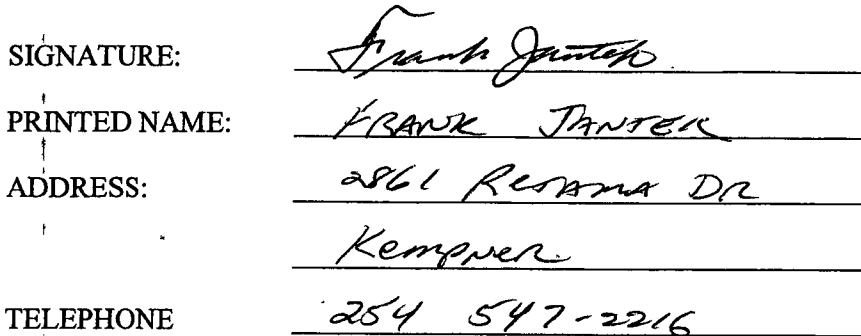 SIGNATURE: Frank Jantek
PRINTED NAME: FRANK JANTEK
ADDRESS: 2861 Retama DR
Kempner
TELEPHONE 254 547-2216